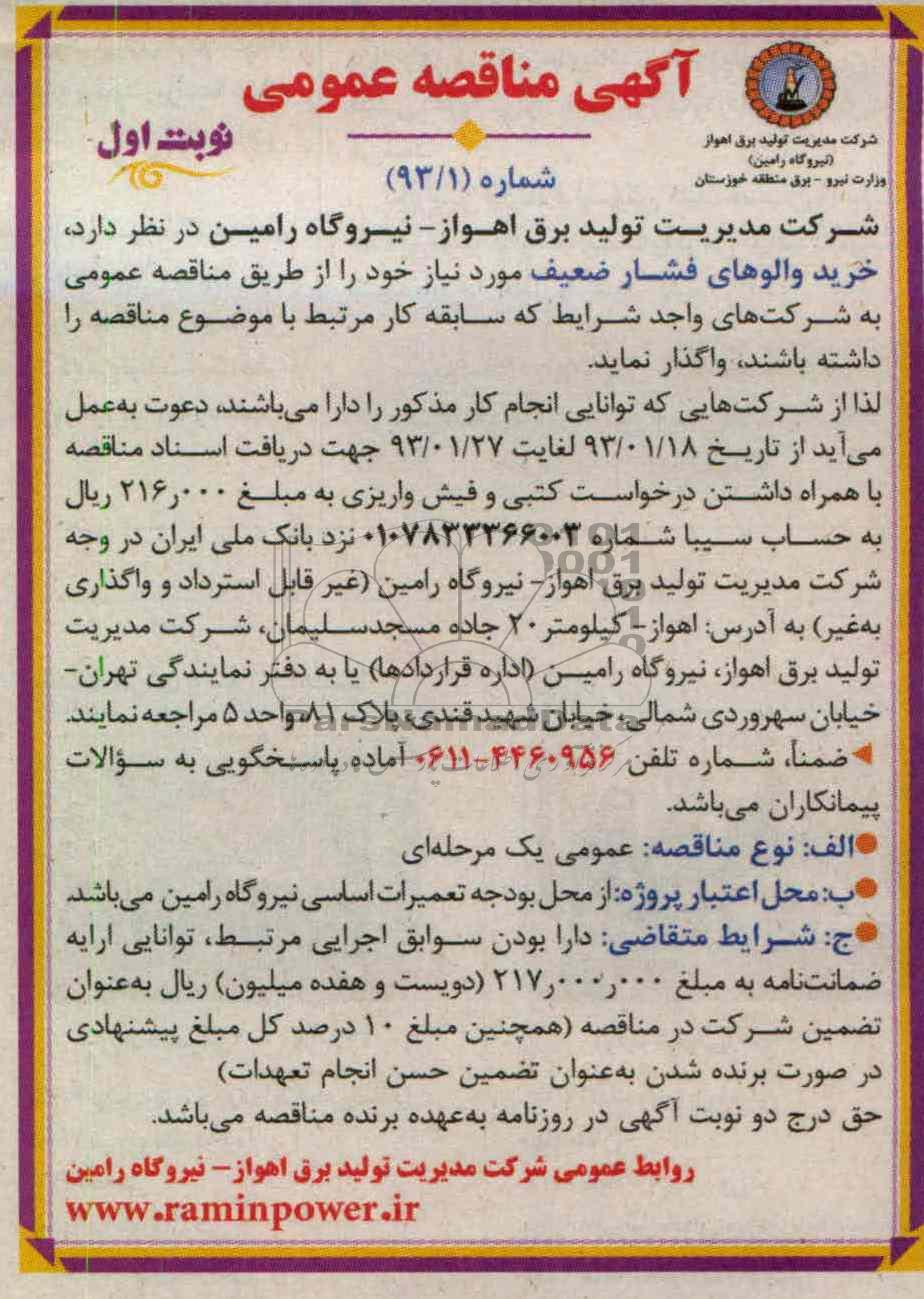 آگهی مناقصه عمومی
نوبت اول
شماره (۹۳/۱)
شرکت مدیریت تولید برق اهواز
(نیروگاه رامین)
وزارت نیرو - برق منطقه خوزستان
شرکت مدیریت تولید برق اهواز- نیروگاه رامین در نظر دارد،
خرید والوهای فشار ضعیف مورد نیاز خود را از طریق مناقصه عمومی
به شرکت‌های واجد شرایط که سابقه کار مرتبط با موضوع مناقصه را
داشته باشند، واگذار نماید.
لذا از شرکت‌هایی که توانایی انجام کار مذکور را دارا می‌باشند، دعوت به‌عمل
می‌آید از تاریخ ۹۳/۰۱/۱۸ لغایت ۹۳/۰۱/۲۷ جهت دریافت اسناد مناقصه
با همراه داشتن درخواست کتبی و فیش واریزی به مبلغ ۲۱۶ر۰۰۰ ریال
به حساب سیبا شماره ۰۱۰۷۸۳۳۳۶۶۰۰۳ نزد بانک ملی ایران در وجه
شرکت مدیریت تولید برق اهواز- نیروگاه رامین (غیر قابل استرداد و واگذاری
به‌غیر) به آدرس: اهواز- کیلومتر ۲۰ جاده مسجدسلیمان، شرکت مدیریت
تولید برق اهواز، نیروگاه رامین (اداره قراردادها) یا به دفتر نمایندگی تهران-
خیابان سهروردی شمالی، خیابان شهید قندی، پلاک ۸۱، واحد ۵ مراجعه نمایند.
ParsNamadData
ضمناً، شماره تلفن ۴۴۶۰۹۵۶-۰۶۱۱ آماده پاسخگویی به سؤالات
پیمانکاران می‌باشد.
الف: نوع مناقصه: عمومی یک مرحله‌ای
ب: محل اعتبار پروژه: از محل بودجه تعمیرات اساسی نیروگاه رامین می‌باشد.
ج: شرایط متقاضی: دارا بودن سوابق اجرایی مرتبط، توانایی ارایه
ضمانت‌نامه به مبلغ ۲۱۷ر۰۰۰ر۰۰۰ (دویست و هفده میلیون) ریال به‌عنوان
تضمین شرکت در مناقصه (همچنین مبلغ ۱۰ درصد کل مبلغ پیشنهادی
در صورت برنده شدن به‌عنوان تضمین حسن انجام تعهدات)
حق درج دو نوبت آگهی در روزنامه به‌عهده برنده مناقصه می‌باشد.
روابط عمومی شرکت مدیریت تولید برق اهواز- نیروگاه رامین
www.raminpower.ir